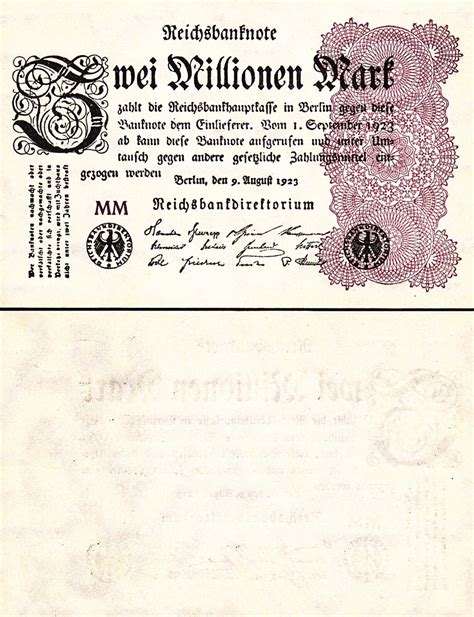 Reichsbanknote
Zwei Millionen Mark
zahlt die Reichsbankhauptkasse in Berlin gegen diese
Banknote dem Einlieferer. Vom 1. September 1923
ab kann diese Banknote aufgerufen und unter Um-
tausch gegen andere gesetzliche Zahlungsmittel ein-
gezogen werden
Berlin, den 9. August 1923
MM Reichsbankdirektorium
Wer Banknoten nachmacht oder
verfälscht oder nachgemachte oder
verfälschte sich verschafft und in
Verkehr bringt, wird mit Zuchthaus
nicht unter zwei Jahren bestraft
REICHSBANKDIREKTORIUM
REICHSBANKDIREKTORIUM